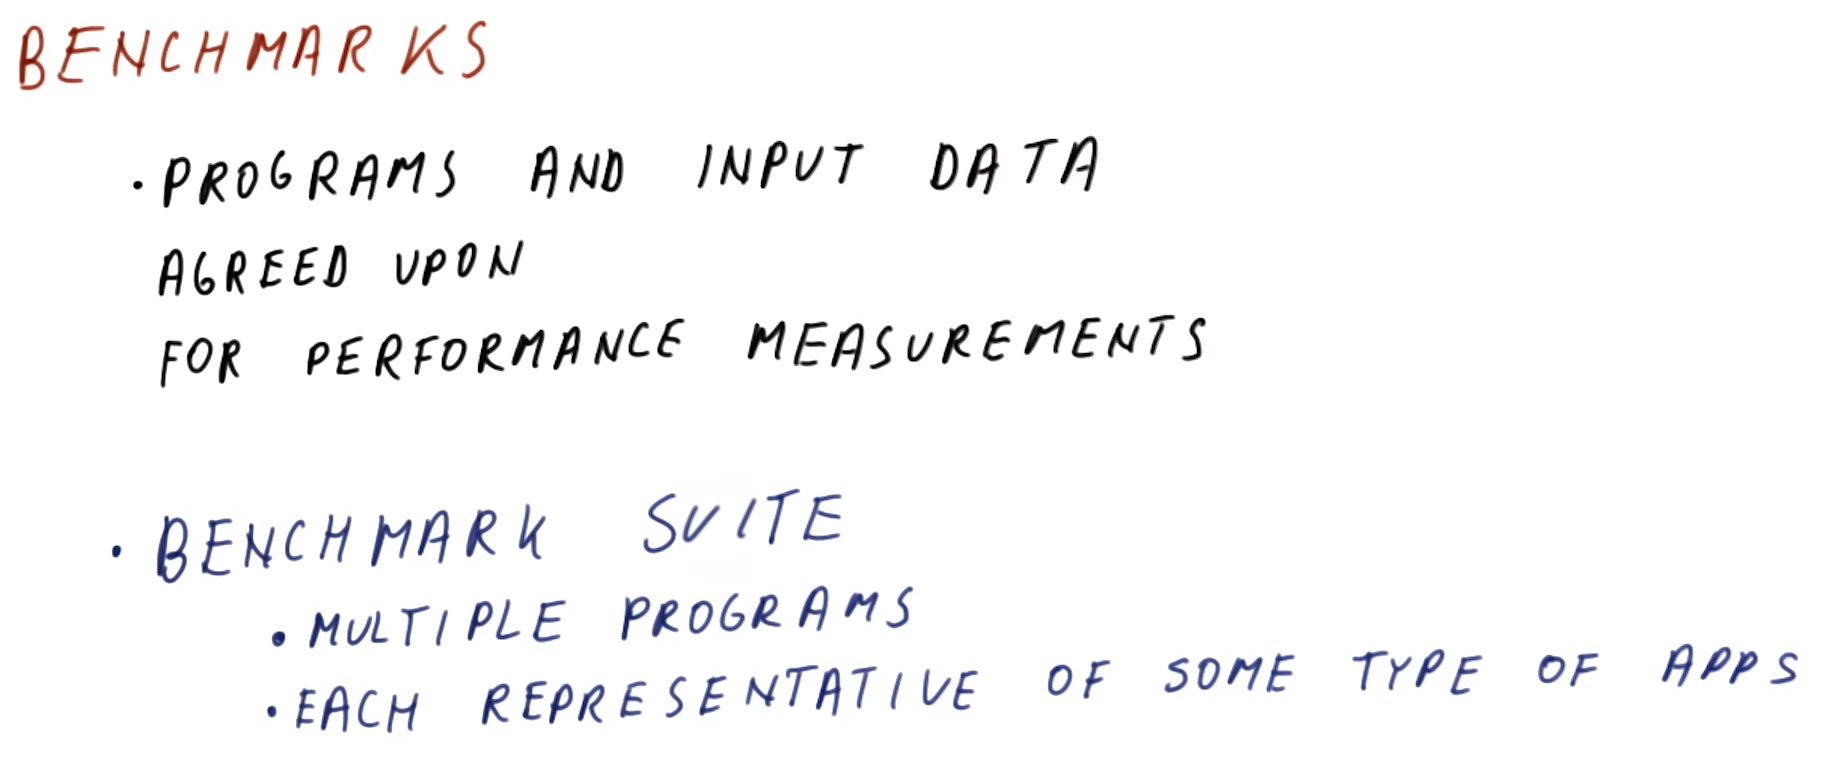 BENCHMARKS
· PROGRAMS AND INPUT DATA
AGREED UPON
FOR PERFORMANCE MEASUREMENTS
· BENCHMARK SUITE
• MULTIPLE PROGRAMS
• EACH REPRESENTATIVE OF SOME TYPE OF APPS